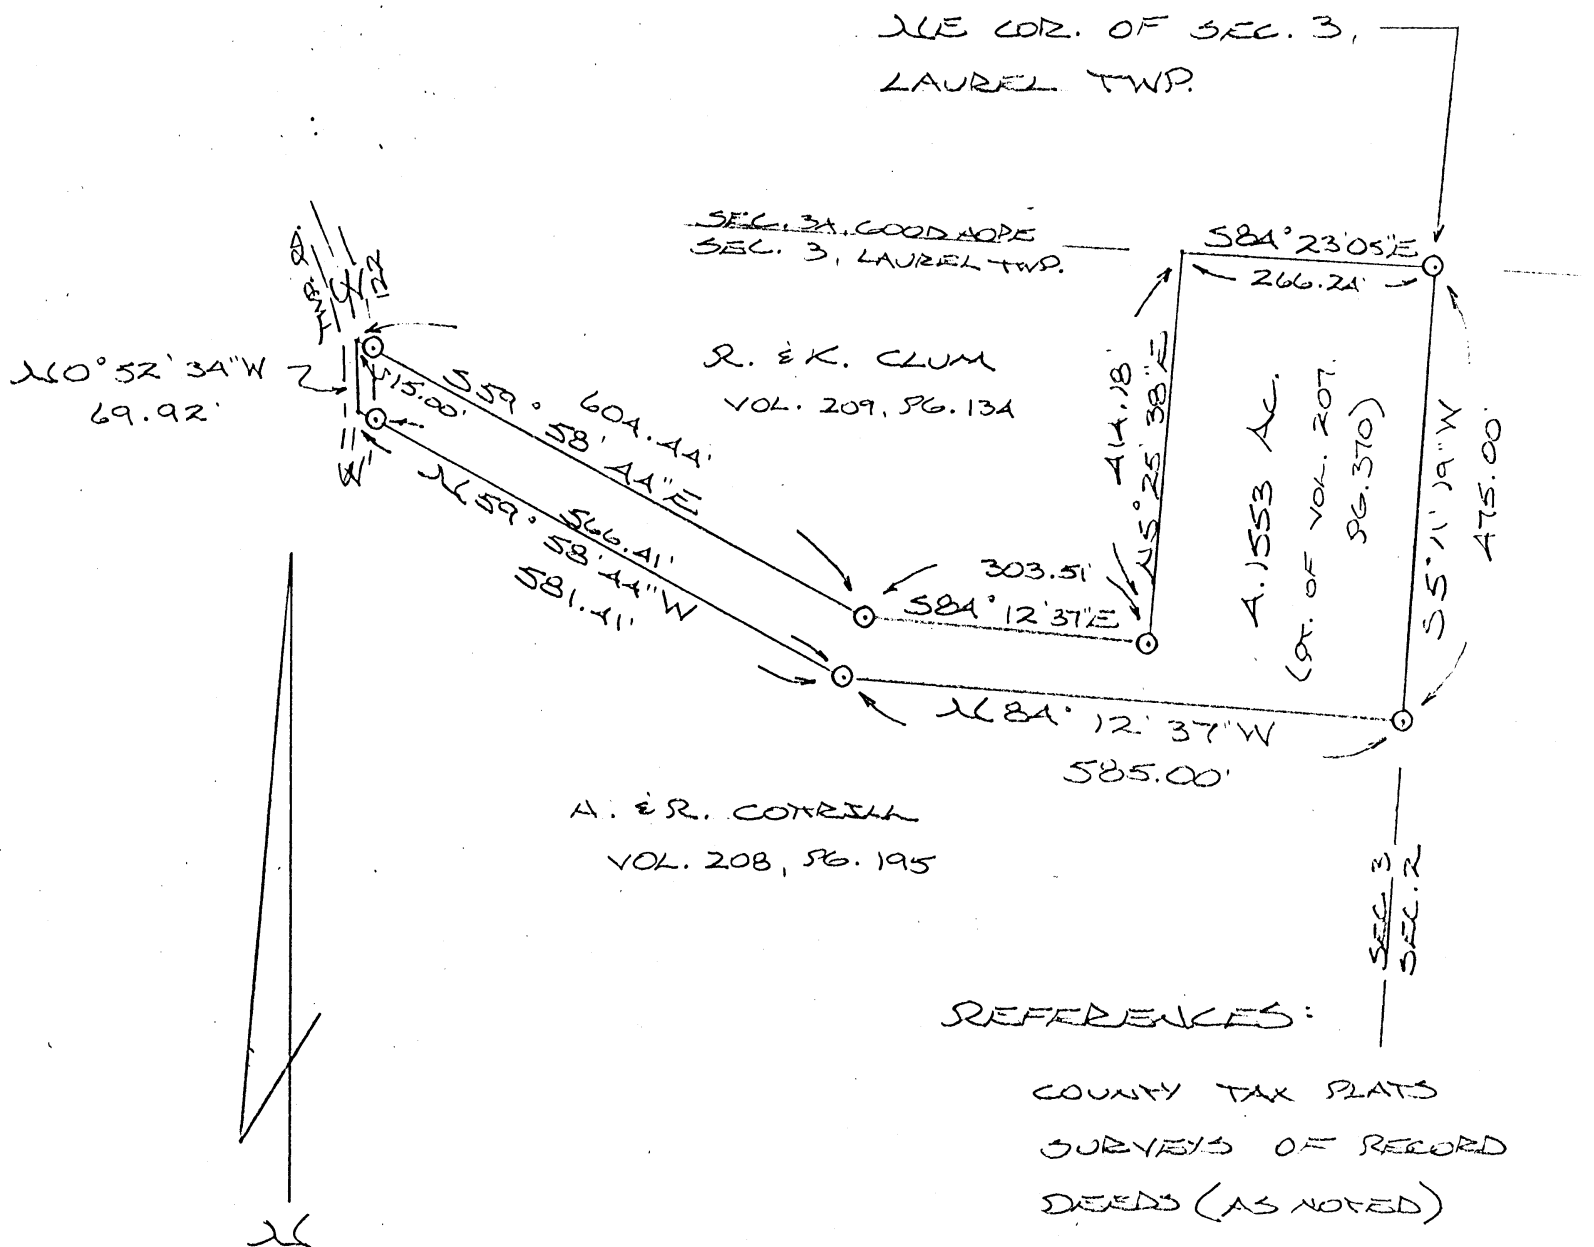 NE COR. OF SEC. 3,
LAUREL TWP.
SEC. 34, GOOD HOPE
SEC. 3, LAUREL TWP.
S84°23'05"E
266.24'
TWP. RD.
122
N0°52'34"W
69.92'
15.00'
S59°58'44"E
604.44'
R. & K. CLUM
VOL. 209, PG. 134
414.18'
N5°25'38"E
4.1553 AC.
(PT. OF VOL. 207,
PG. 370)
S5°11'19"W
475.00'
N59°58'44"W
566.41'
581.41'
303.51'
S84°12'37"E
N84°12'37"W
585.00'
A. & R. COTTRILL
VOL. 208, PG. 195
SEC. 3
SEC. 2
REFERENCES:
COUNTY TAX PLATS
SURVEYS OF RECORD
DEEDS (AS NOTED)
N